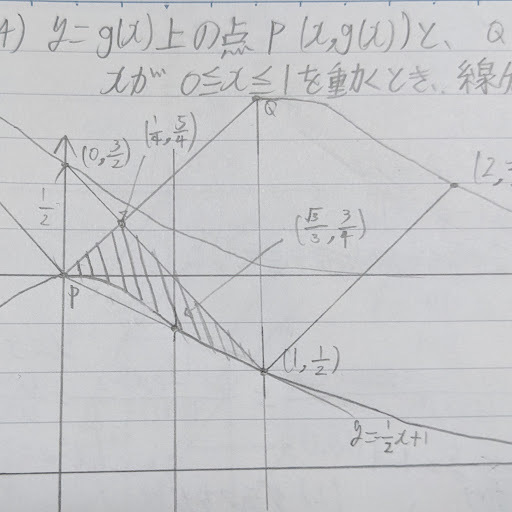 4) y=g(x)上の点 P (x,g(x))と、 Q
xが 0≤x≤1を動くとき、線分
(1/4, 5/4)
Q
(0, 3/2)
(2,
1/2
(√3/3, 3/4)
P
(1, 1/2)
y=-1/2x+1